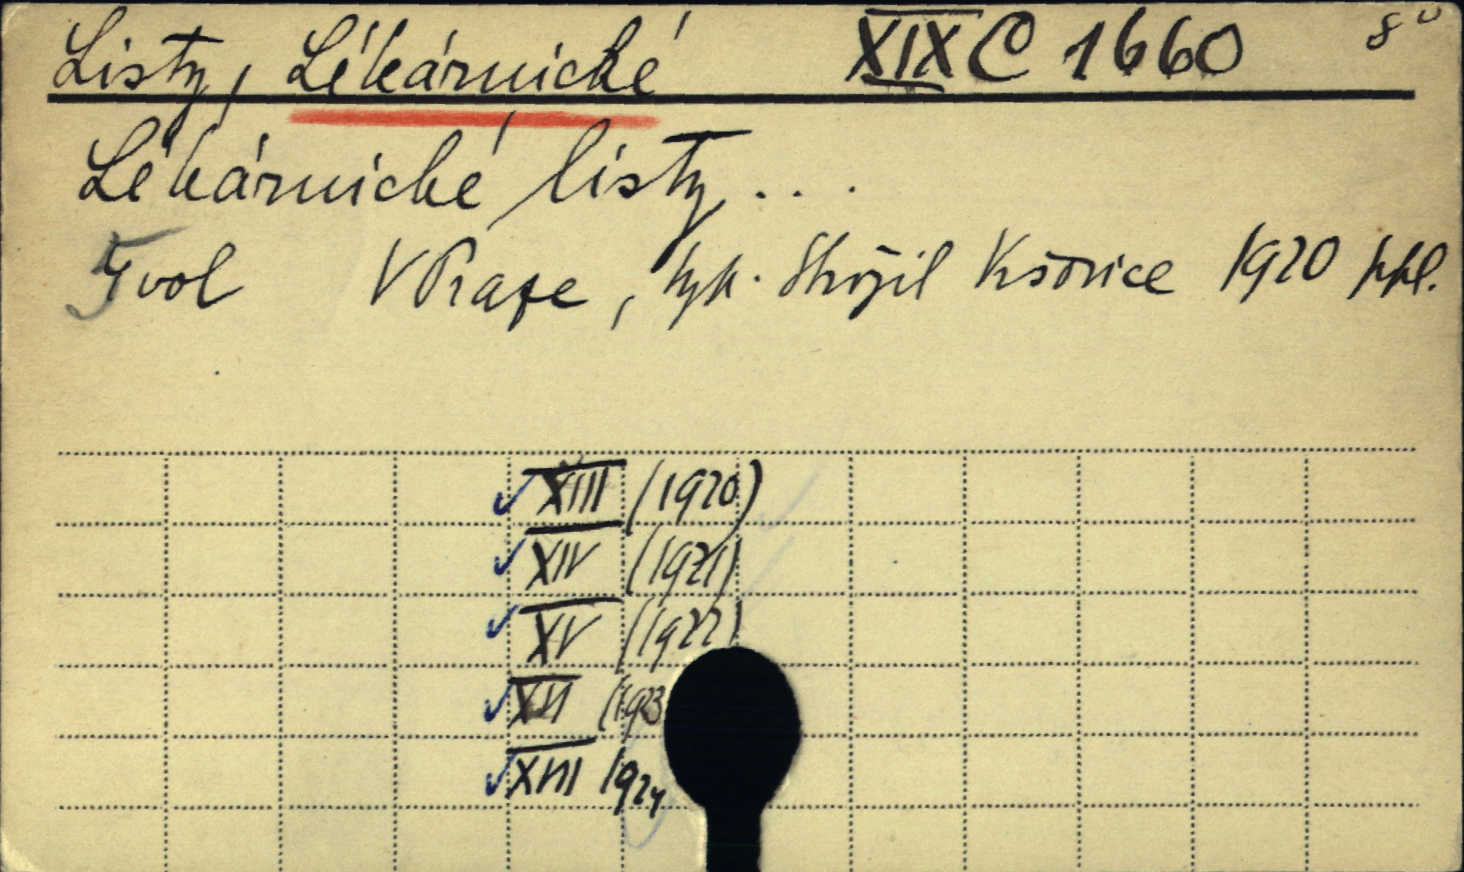 Listy, Lékárnické XIX C 1660 8°
Lékárnické listy...
5 vol V Praze, typ. Stožil 1920
XIII (1920)
XIV (1921)
XV (1922)
XVI (1923
XVII 1924